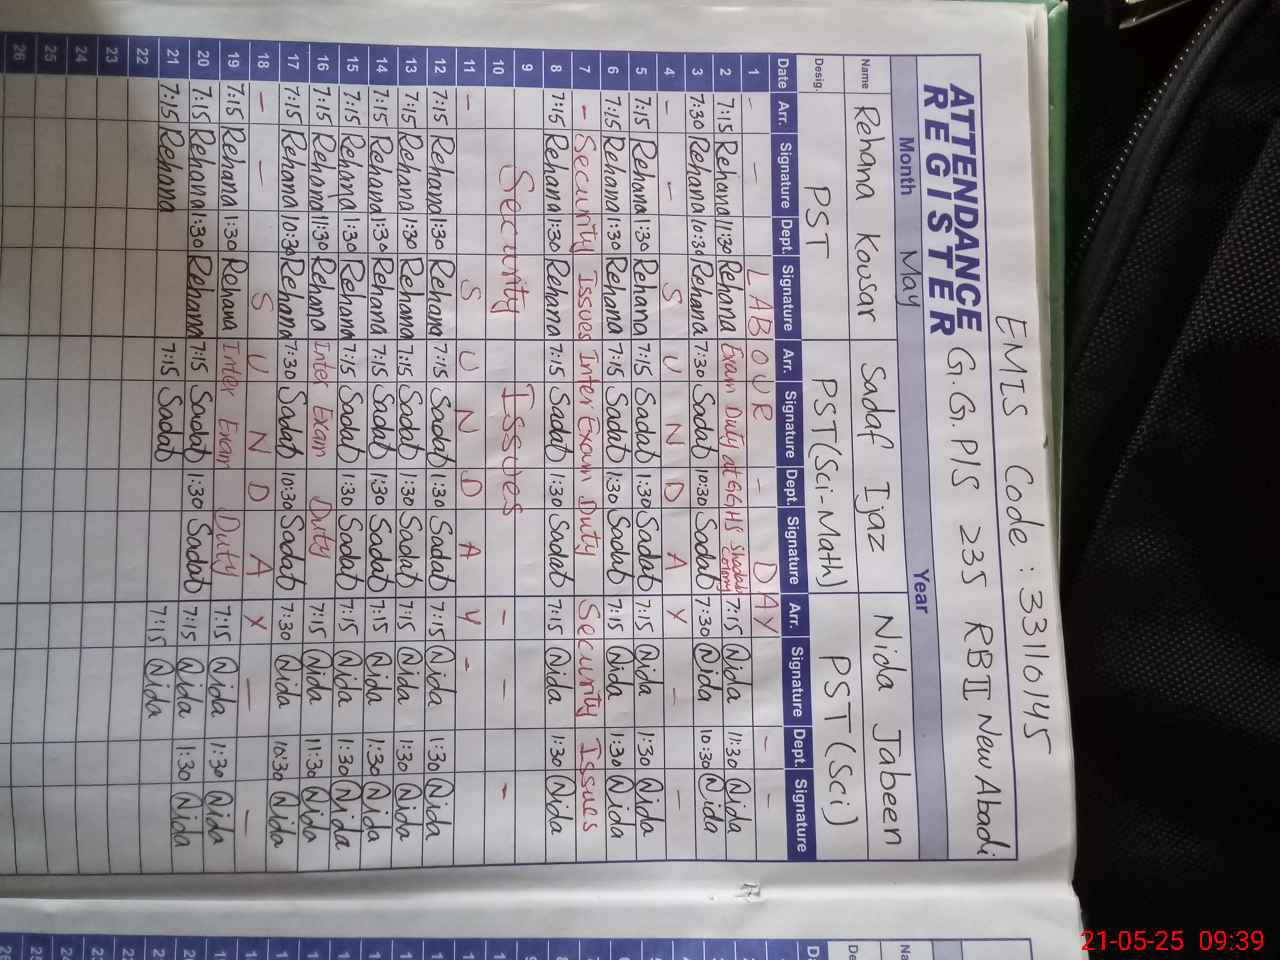 EMIS Code : 33110145
ATTENDANCE REGISTER G.G.P/S 235 RB II New Abadi
Month May Year
Name Rehana Kousar Sadaf Ijaz Nida Jabeen
Desig. PST PST(Sci-Math) PST(Sci)
Date Arr. Signature Dept. Signature Arr. Signature Dept. Signature Arr. Signature Dept. Signature
1 - - LABOUR - DAY - -
2 7:15 Rehana 11:30 Rehana Exam Duty at GGHS Shadab colony 7:15 Nida 11:30 Nida
3 7:30 Rehana 10:30 Rehana 7:30 Sadaf 10:30 Sadaf 7:30 Nida 10:30 Nida
4 - - S U N D A Y - -
5 7:15 Rehana 1:30 Rehana 7:15 Sadaf 1:30 Sadaf 7:15 Nida 1:30 Nida
6 7:15 Rehana 1:30 Rehana 7:15 Sadaf 1:30 Sadaf 7:15 Nida 1:30 Nida
7 - Security Issues Inter Exam Duty Security Issues
8 7:15 Rehana 1:30 Rehana 7:15 Sadaf 1:30 Sadaf 7:15 Nida 1:30 Nida
9
10 Security Issues - - -
11 - S U N D A Y -
12 7:15 Rehana 1:30 Rehana 7:15 Sadaf 1:30 Sadaf 7:15 Nida 1:30 Nida
13 7:15 Rehana 1:30 Rehana 7:15 Sadaf 1:30 Sadaf 7:15 Nida 1:30 Nida
14 7:15 Rehana 1:30 Rehana 7:15 Sadaf 1:30 Sadaf 7:15 Nida 1:30 Nida
15 7:15 Rehana 1:30 Rehana 7:15 Sadaf 1:30 Sadaf 7:15 Nida 1:30 Nida
16 7:15 Rehana 11:30 Rehana Inter Exam Duty 7:15 Nida 11:30 Nida
17 7:15 Rehana 10:30 Rehana 7:30 Sadaf 10:30 Sadaf 7:30 Nida 10:30 Nida
18 - - S U N D A Y - -
19 7:15 Rehana 1:30 Rehana Inter Exam Duty 7:15 Nida 1:30 Nida
20 7:15 Rehana 1:30 Rehana 7:15 Sadaf 1:30 Sadaf 7:15 Nida 1:30 Nida
21 7:15 Rehana 7:15 Sadaf 7:15 Nida
22
23
24
25
26
21-05-25 09:39